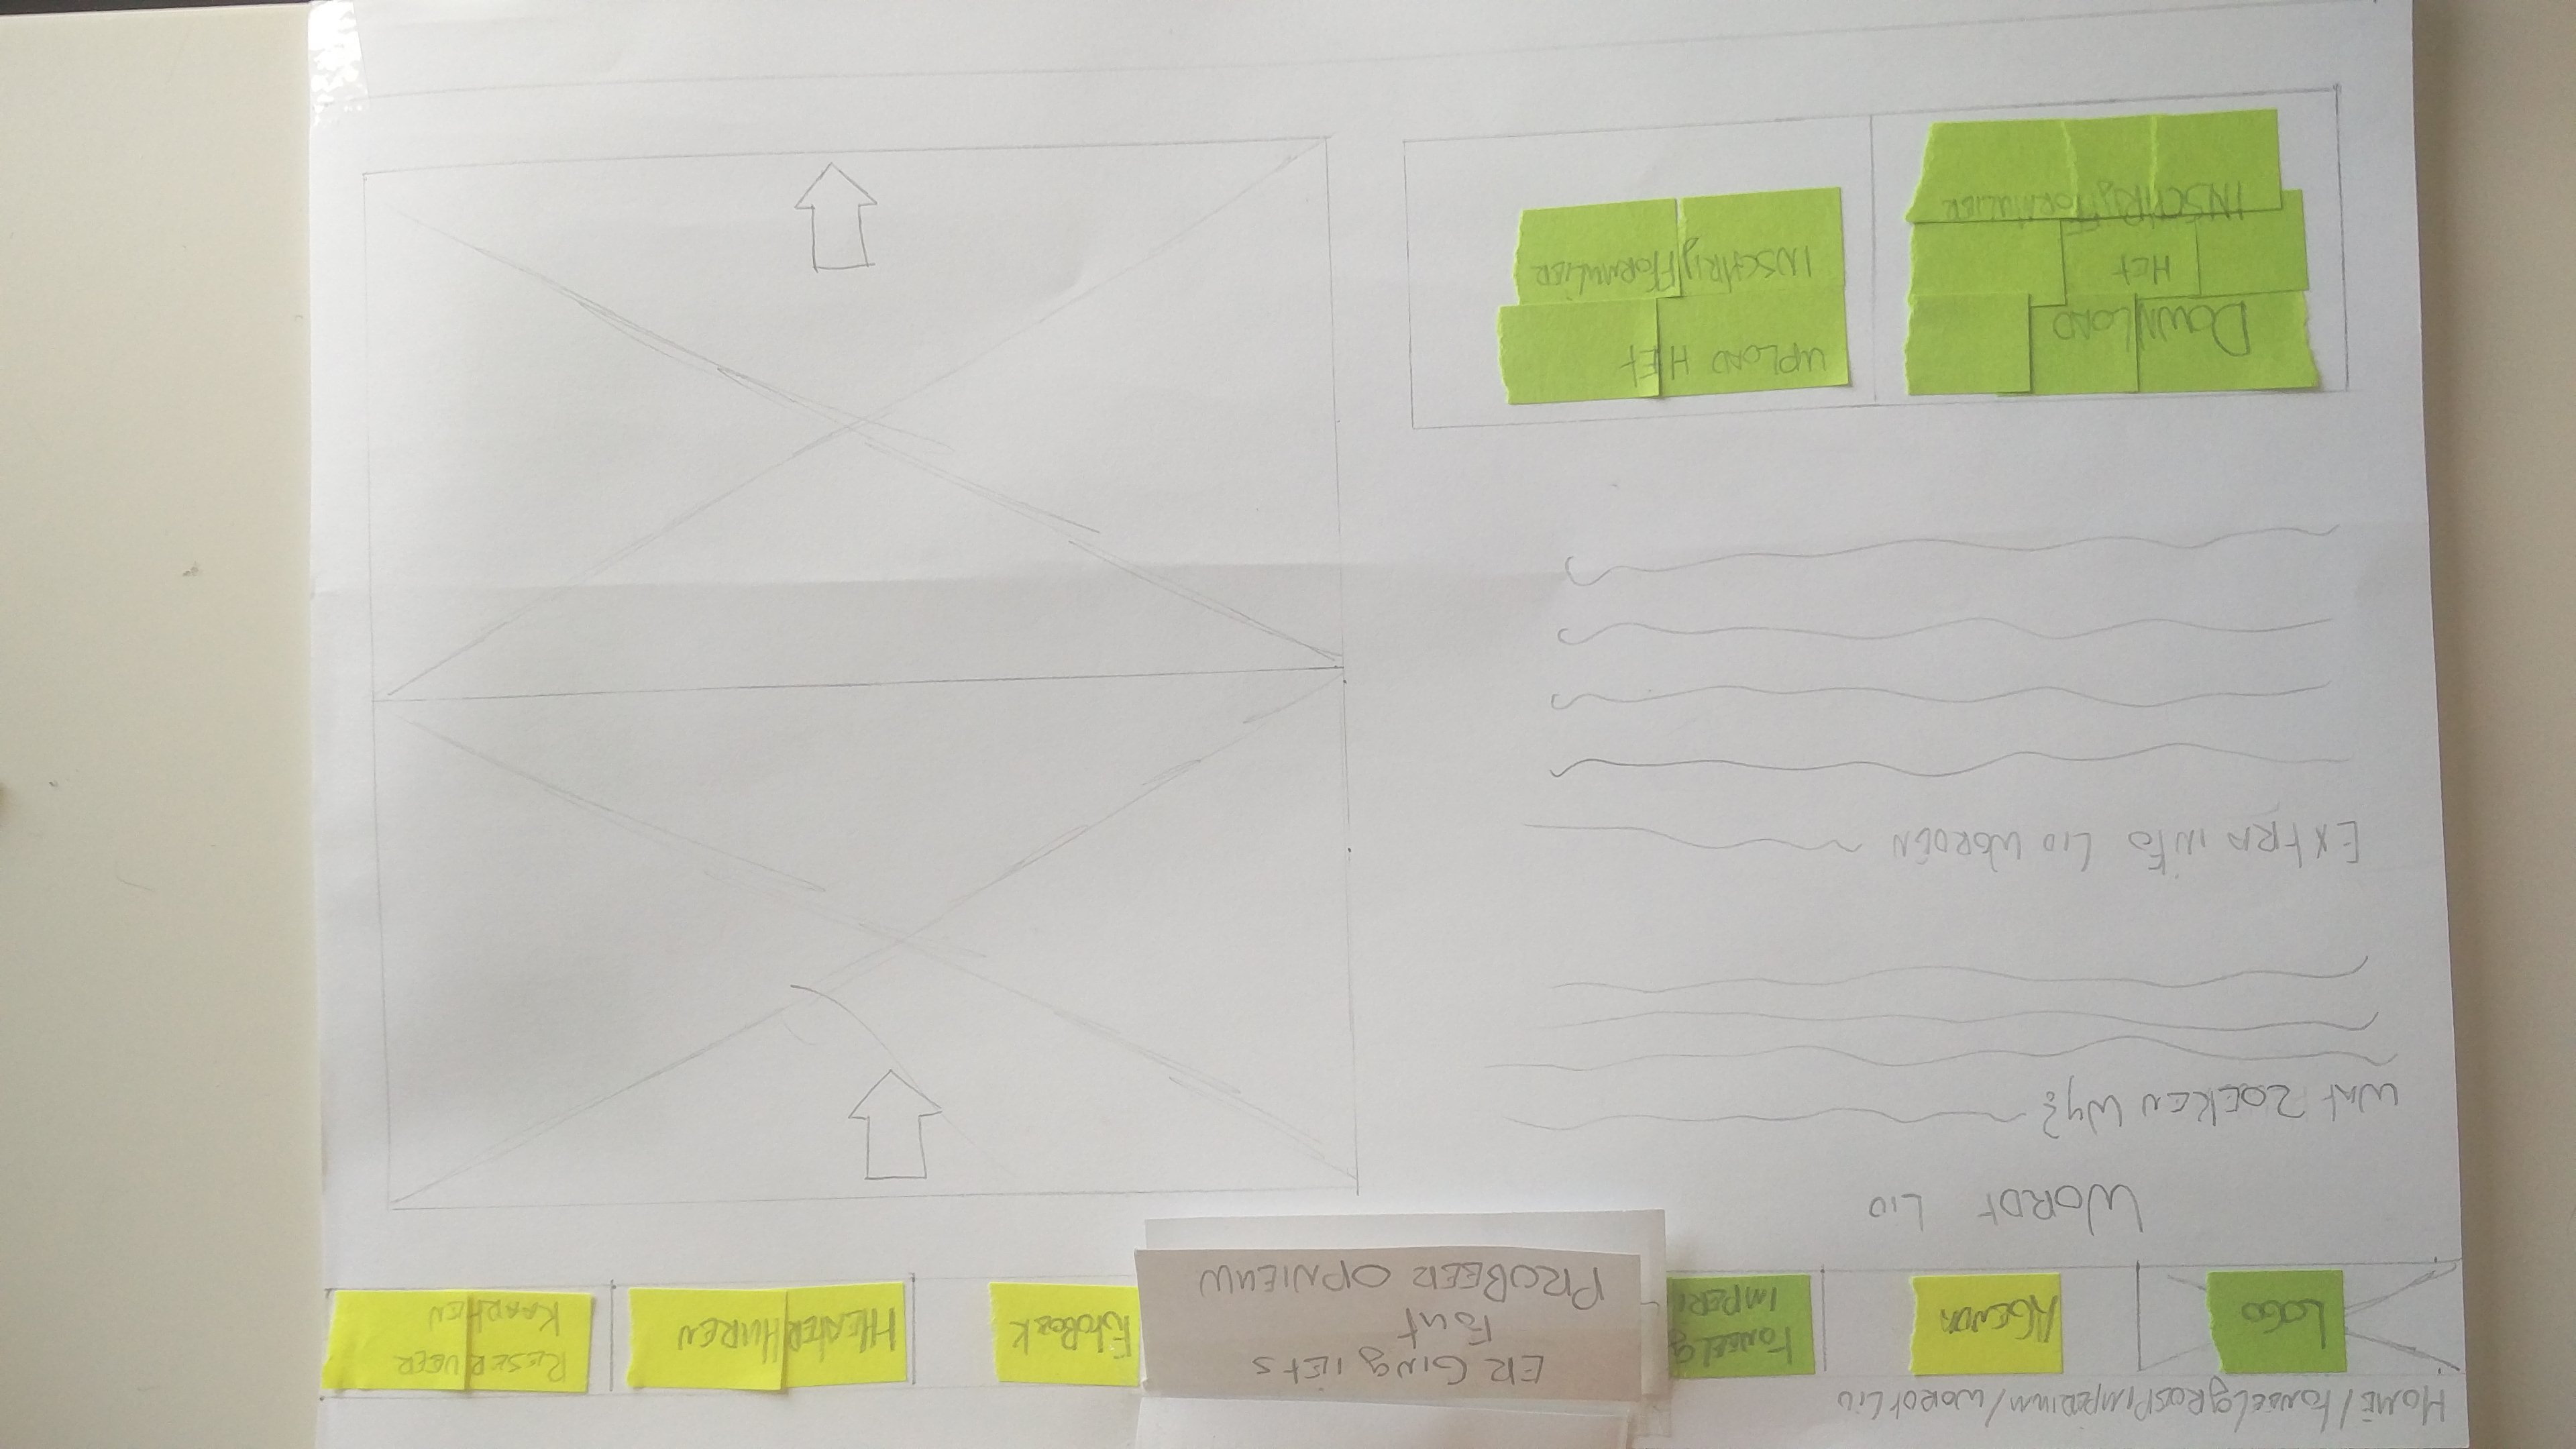 HOME/TONEELGROEPIMPERIUM/WORDTLID
LOGO
AGENDA
TONEELG
IMPERI
ER GING IETS
FOUT
PROBEER OPNIEUW
FOTOBOEK
THEATER HUREN
RESERVEER
KAARTEN
WORDT LID
WAT ZOEKEN WIJ?
EXTRA INFO LID WORDEN
DOWNLOAD
HET
INSCHRIJFFORMULIER
UPLOAD HET
INSCHRIJFFORMULIER